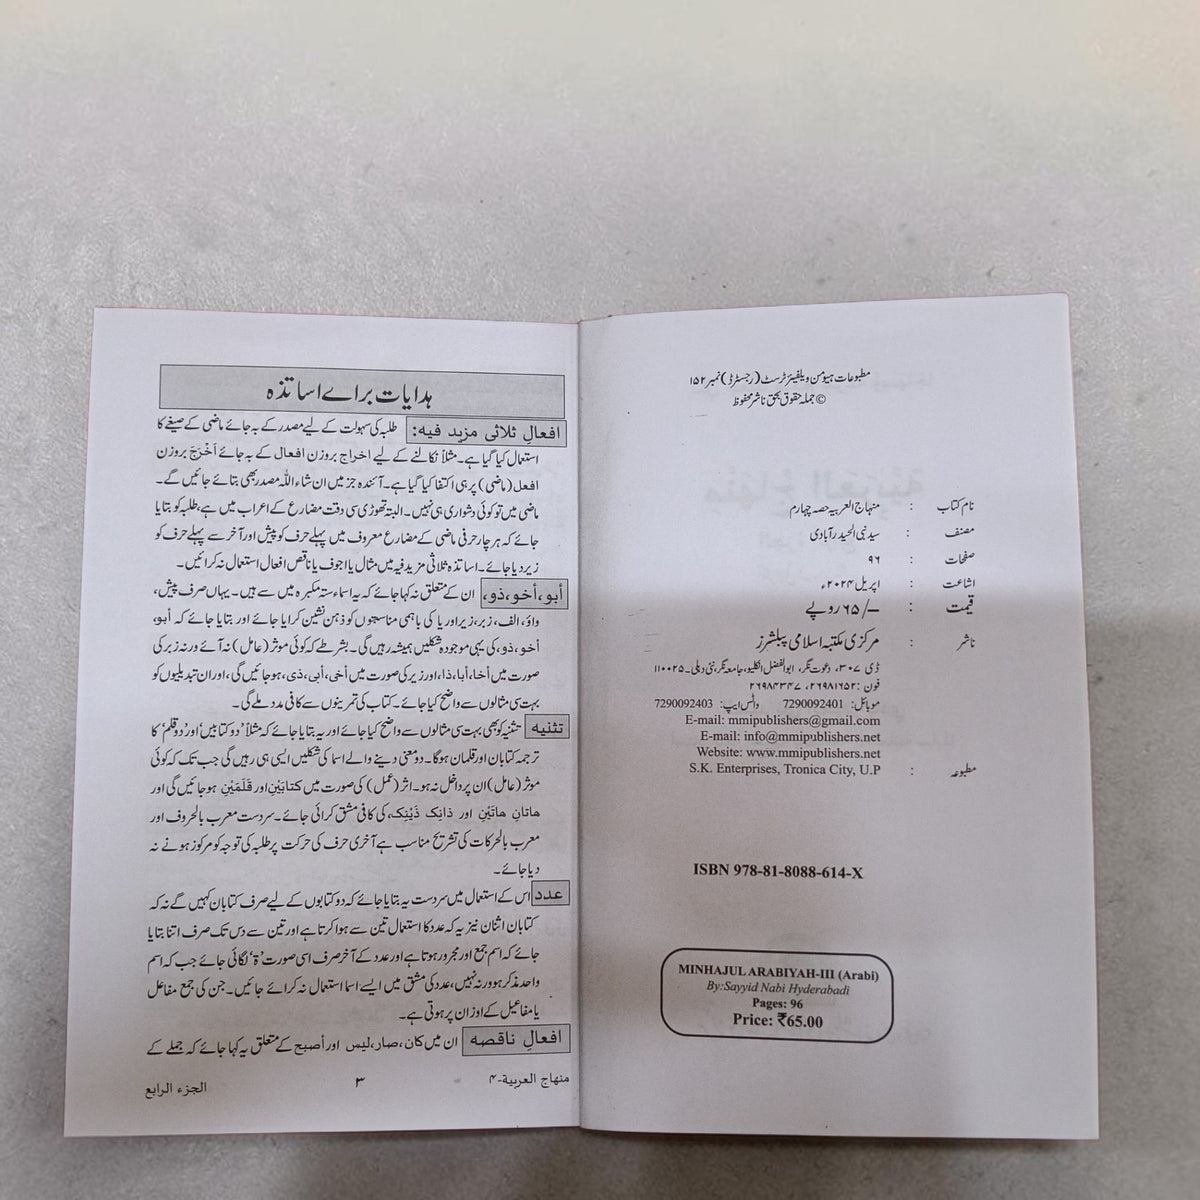 مطبوعات ہیومن ویلفیئر ٹرسٹ (رجسٹرڈ) نمبر ۱۵۲
© جملہ حقوق بحق ناشر محفوظ
نام کتاب : منہاج العربیہ حصہ چہارم
مصنف : سید نبی الحیدرآبادی
صفحات : ۹۶
اشاعت : اپریل ۲۰۲۴ء
قیمت : ۶۵/– روپے
ناشر : مرکزی مکتبہ اسلامی پبلشرز
ڈی ۳۰۷، دعوت نگر، ابوالفضل انکلیو، جامعہ نگر، نئی دہلی۔۱۱۰۰۲۵
فون: ۲۶۹۸۱۶۵۲، ۲۶۹۸۴۳۴۷
موبائل: 7290092401 واٹس ایپ: 7290092403
E-mail: mmipublishers@gmail.com
E-mail: info@mmipublishers.net
Website: www.mmipublishers.net
مطبوعہ : S.K. Enterprises, Tronica City, U.P
ISBN 978-81-8088-614-X
MINHAJUL ARABIYAH-III (Arabi)
By:Sayyid Nabi Hyderabadi
Pages: 96
Price: ₹65.00
ہدایات براے اساتذہ
افعالِ ثلاثی مزید فیہ: طلبہ کی سہولت کے لیے مصدر کے بہ جائے ماضی کے صیغے کا
استعمال کیا گیا ہے۔ مثلاً نکالنے کے لیے اخراج بروزن افعال کے بہ جائے اَخْرَجَ بروزن
افعل (ماضی) پر ہی اکتفا کیا گیا ہے۔ آئندہ جز میں ان شاء اللہ مصدر بھی بتائے جائیں گے۔
ماضی میں تو کوئی دشواری ہی نہیں۔ البتہ تھوڑی سی دقت مضارع کے اعراب میں ہے، طلبہ کو بتایا
جائے کہ ہر چار حرفی ماضی کے مضارع معروف میں پہلے حرف کو پیش اور آخر سے پہلے حرف کو
زیر دیا جائے۔ اساتذہ ثلاثی مزید فیہ میں مثال یا اجوف یا ناقص افعال استعمال نہ کرائیں۔
أبو، أخو، ذو، ان کے متعلق نہ کہا جائے کہ یہ اسماء ستہ مکبرہ میں سے ہیں۔ یہاں صرف پیش،
واؤ، الف، زبر، زیر اور یا کی باہمی مناسبتوں کو ذہن نشین کرایا جائے اور بتایا جائے کہ أبو،
أخو، ذو، کی یہی موجودہ شکلیں ہمیشہ رہیں گی۔ بشرطے کہ کوئی موثر (عامل) نہ آئے ورنہ زبر کی
صورت میں أخا، أبا، ذا، اور زیر کی صورت میں أخی، أبی، ذی، ہو جائیں گی، اور ان تبدیلیوں کو
بہت سی مثالوں سے واضح کیا جائے۔ کتاب کی تمرینوں سے کافی مدد ملے گی۔
تثنیہ تثنیہ کو بھی بہت سی مثالوں سے واضح کیا جائے اور یہ بتایا جائے کہ مثلاً ’دو کتابیں‘ اور ’دو قلم‘ کا
ترجمہ کتابان اور قلمان ہوگا۔ دو معنی دینے والے اسما کی شکلیں ایسی ہی رہیں گی جب تک کہ کوئی
موثر (عامل) ان پر داخل نہ ہو۔ اثر (عمل) کی صورت میں کتابَیْنِ اور قَلَمَیْنِ ہو جائیں گی اور
هاتانِ هاتَیْنِ اور ذانِک ذَیْنِک، کی کافی مشق کرائی جائے۔ سردست معرب بالحروف اور
معرب بالحرکات کی تشریح مناسب ہے آخری حرف کی حرکت پر طلبہ کی توجہ کو مرکوز ہونے نہ
دیا جائے۔
عدد اس کے استعمال میں سردست یہ بتایا جائے کہ دو کتابوں کے لیے صرف کتابان کہیں گے نہ کہ
کتابان اثنان نیز یہ کہ عدد کا استعمال تین سے ہوا کرتا ہے اور تین سے دس تک صرف اتنا بتایا
جائے کہ اسم جمع اور مجرور ہوتا ہے اور عدد کے آخر صرف اسی صورت ’ۃ‘ لگائی جائے جب کہ اسم
واحد مذکر ہو ورنہ نہیں، عدد کی مشق میں ایسے اسما استعمال نہ کرائے جائیں۔ جن کی جمع مفاعل
یا مفاعیل کے اوزان پر ہوتی ہے۔
افعالِ ناقصہ ان میں کان، صار، لیس اور أصبح کے متعلق یہ کہا جائے کہ جملے کے
منهاج العربية-۴ ۳ الجزء الرابع